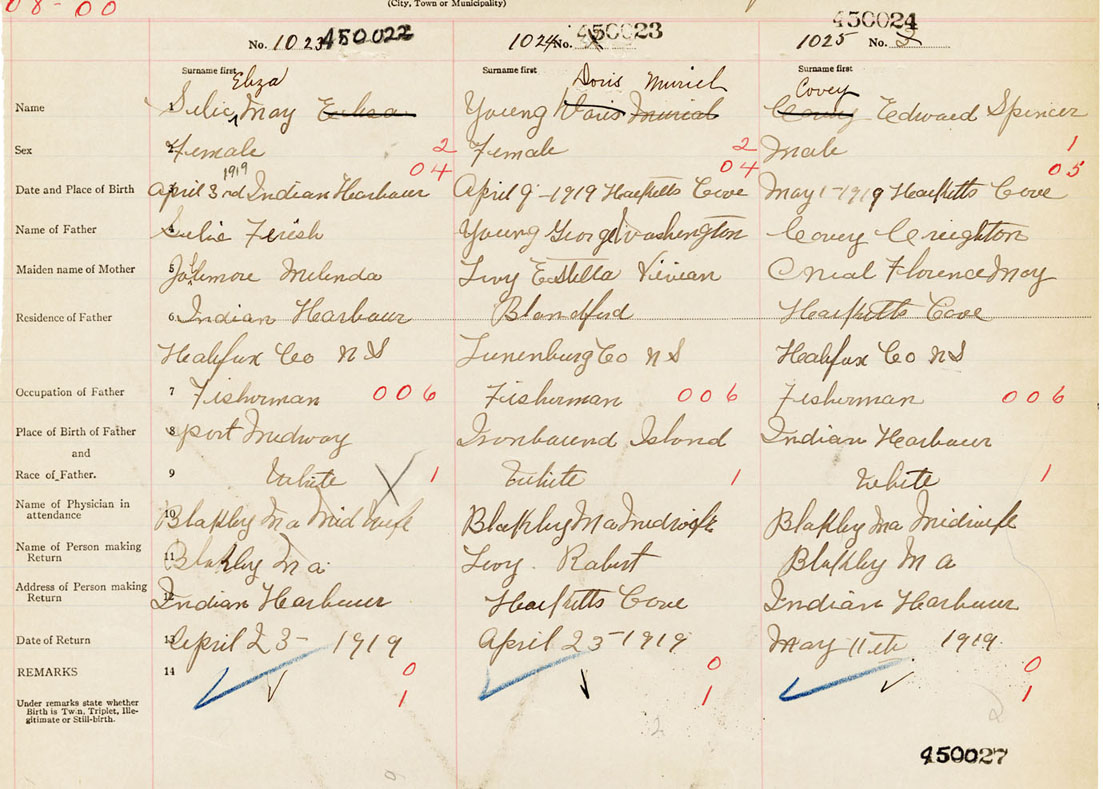 08-00
(City, Town or Municipality)
No. 1023 450022 1024 No. 450023 1025 No. 2 450024
Surname first Eliza Surname first Doris Muriel Surname first Covey
Name 1 Selig, May Young Doris Murial Edward Spencer
Sex 2 Female 2 Female 2 Male 1
1919 04 04 05
Date and Place of Birth 3 April 3rd Indian Harbour April 9-1919 Hacketts Cove May 1-1919 Hacketts Cove
Name of Father 4 Selie Young George Washington Covey Creighton
Maiden name of Mother 5 Jollimore Melinda Levy Estella Vivian Oneial Florence May
Residence of Father 6 Indian Harbour Blandford Hacketts Cove
Halifax Co N S Lunenburg Co N S Halifax Co N S
Occupation of Father 7 Fisherman 006 Fisherman 006 Fisherman 006
Place of Birth of Father 8 port Medway Ironbound Island Indian Harbour
and
Race of Father. 9 White X 1 White 1 White 1
Name of Physician in attendance 10 Blakley M a Mid Wife Blakley M a Midwife Blakley M a Midwife
Name of Person making Return 11 Blakley M a Levy Robert Blakley M a
Address of Person making Return 12 Indian Harbour Hacketts Cove Indian Harbour
Date of Return 13 April 23-1919 April 23-1919 May 11th 1919
REMARKS 14 0 0 0
Under remarks state whether Birth is Twin, Triplet, Ille-gitimate or Still-birth. 1 1 1
2 2
450027